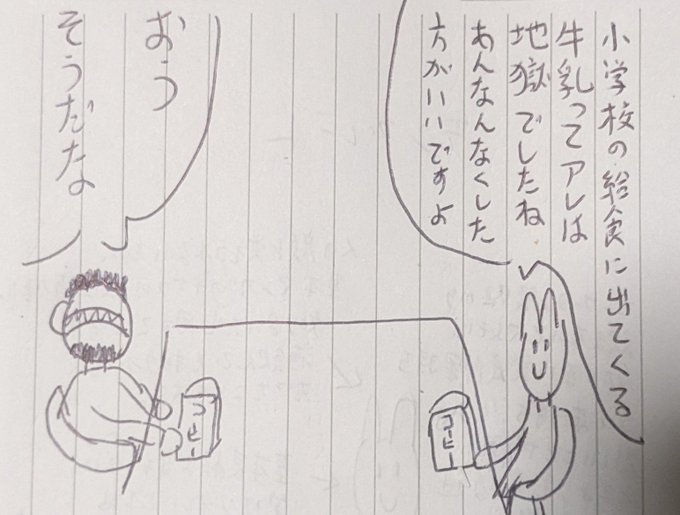 小学校の給食に出てくる
牛乳ってアレは
地獄でしたね
あんなんなくした
方がいいですよ
おう
そうだな
コーヒー
コーヒー